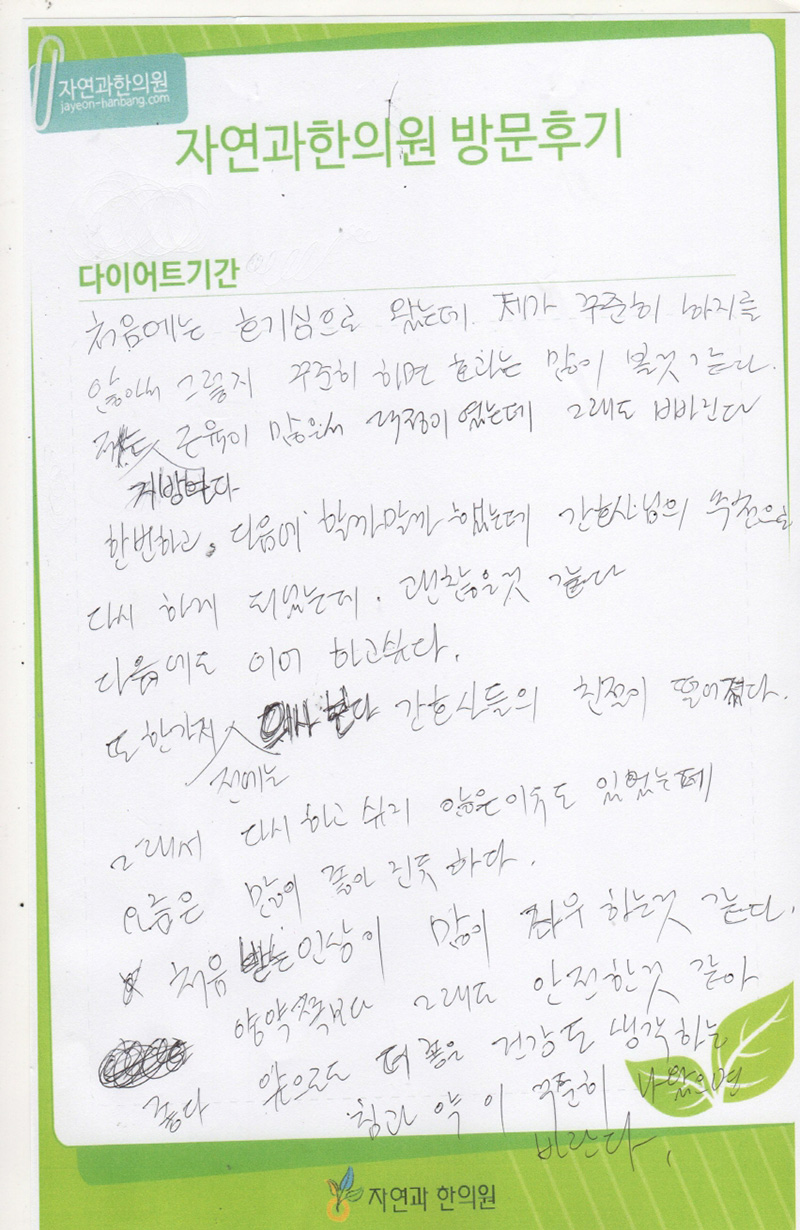 자연과한의원
jayeon-hanbang.com
자연과한의원 방문후기
다이어트기간
처음에는 호기심으로 왔는데. 제가 꾸준히 하지를
않아서 그렇지 꾸준히 하면 효과는 많이 볼것 같다.
저는 근육이 많은서 걱정이였는데 그래도 빠진다
지방보다
한번하고, 다음에 할까말까 했는데 간호사님의 추천으로
다시 하게 되었는데. 괜찮을것 같다
다음에도 이어 하고싶다.
또한가지 간호사들의 친절이 떨어졌다.
전에는
그래서 다시 하고 싶지 않은이유도 있었는데
요즘은 많이 좋아 진듯 하다.
처음 받는 인상이 많이 좌우 하는것 같다.
양약쪽보다 그래도 안전한것 같아
좋다 앞으로도 더 좋은 건강도 생각하는
침과 약이 꾸준히 나왔으면
바란다.
자연과 한의원